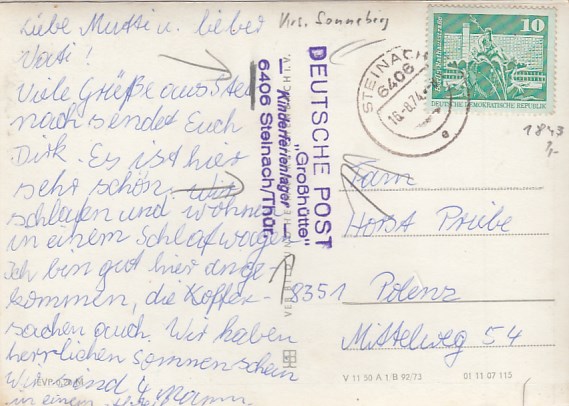 Liebe Mutti u. lieber
Vati!
Viele Grüße aus Stei
nach sendet Euch
Dirk. Es ist hier
sehr schön. Wir
schlafen und wohnen
in einem Schlafwagen
Ich bin gut hier ange
kommen, die Koffer-
sachen auch. Wir haben
herrlichen Sonnenschein
Wir sind 4 Mann
in einem
Krs. Sonneberg
DEUTSCHE POST
„Großhütte"
Kinderferienlager
6406 Steinach/Thür.
STEINACH
6406
16-8.74
10
DEUTSCHE DEMOKRATISCHE REPUBLIK
1843
Fam.
Horst Preibe
8351 Polenz
Mittelweg 54
V 11 50 A 1/B 92/73 01 11 07 115